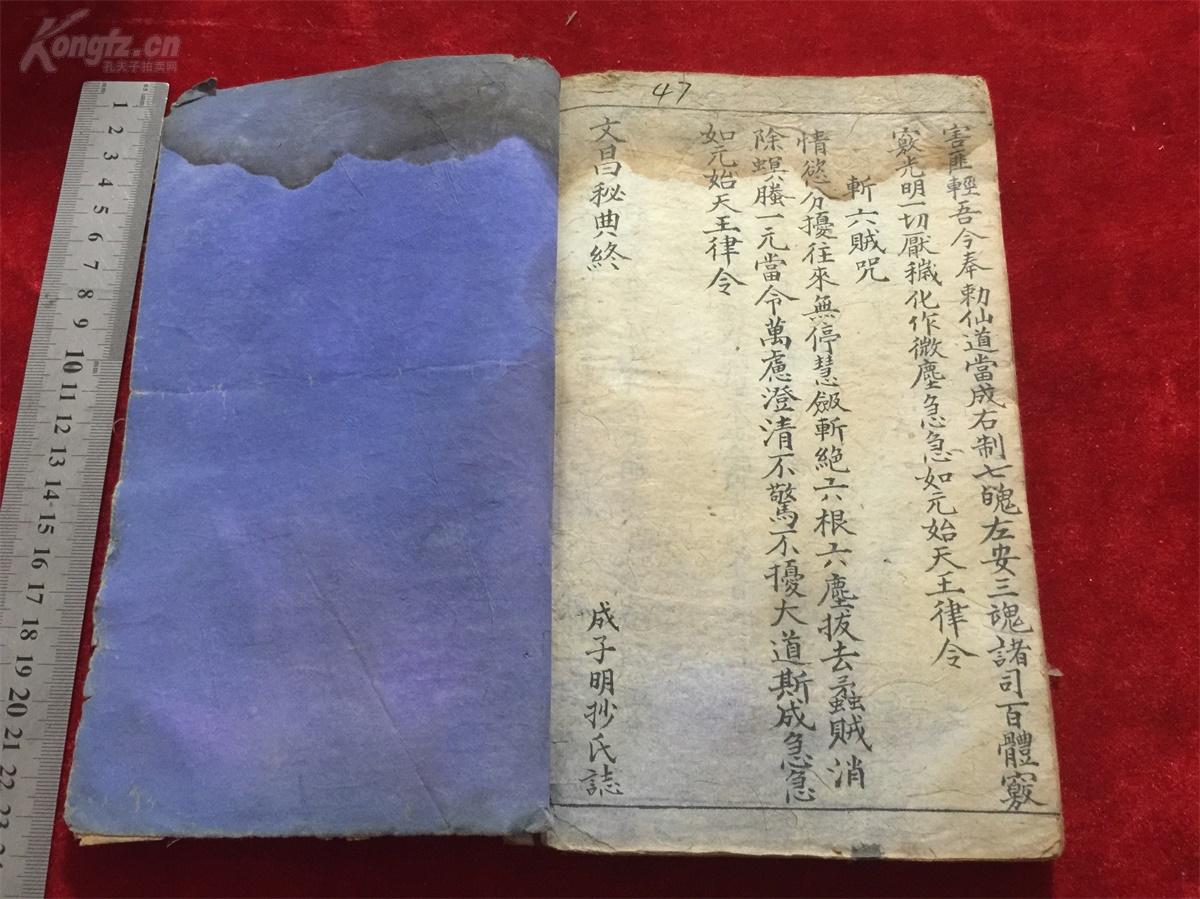 Kongfz.cn
孔夫子拍卖网
47
害匪輕吾今奉勅仙道當成右制七魄左安三魂諸司百體竅
竅光明一切厭穢化作微塵急急如元始天王律令
斬六賊咒
情慾分擾往來無停慧劔斬絶六根六塵拔去蟊賊消
除螟螣一元當令萬慮澄清不驚不擾大道斯成急急
如元始天王律令
文昌秘典終
成子明抄氏誌
1
2
3
4
5
6
7
8
9
10
11
12
13
14
15
16
17
18
19
20
21
22
23
24